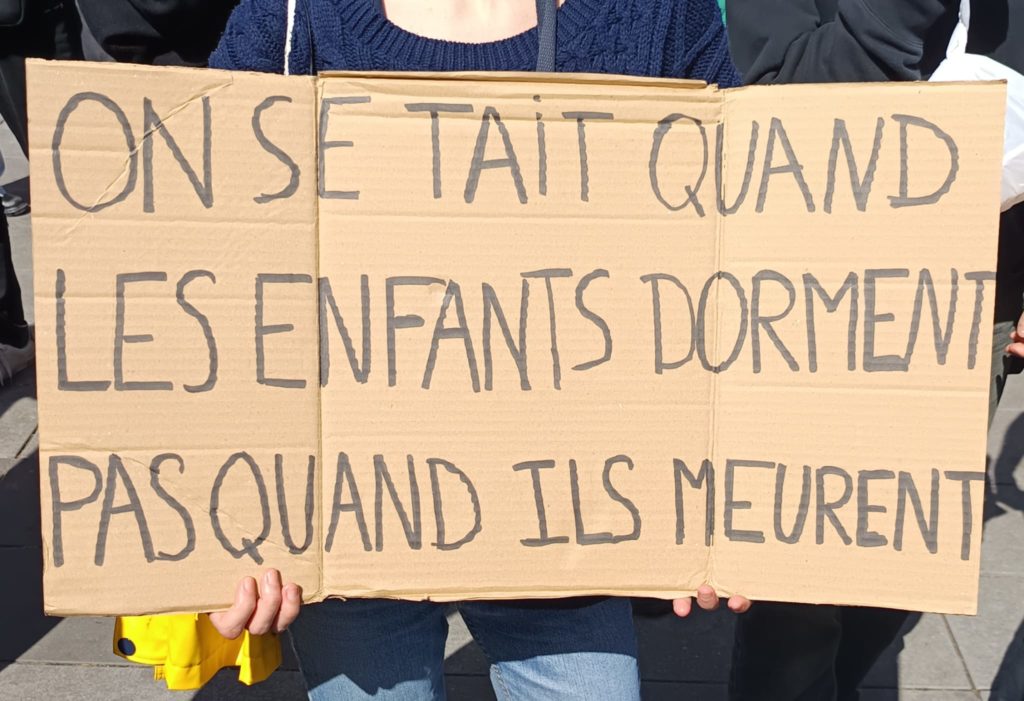 ON SE TAiT QUAND
LES ENFANTS DORMENT
PAS QUAND ILS MEURENT